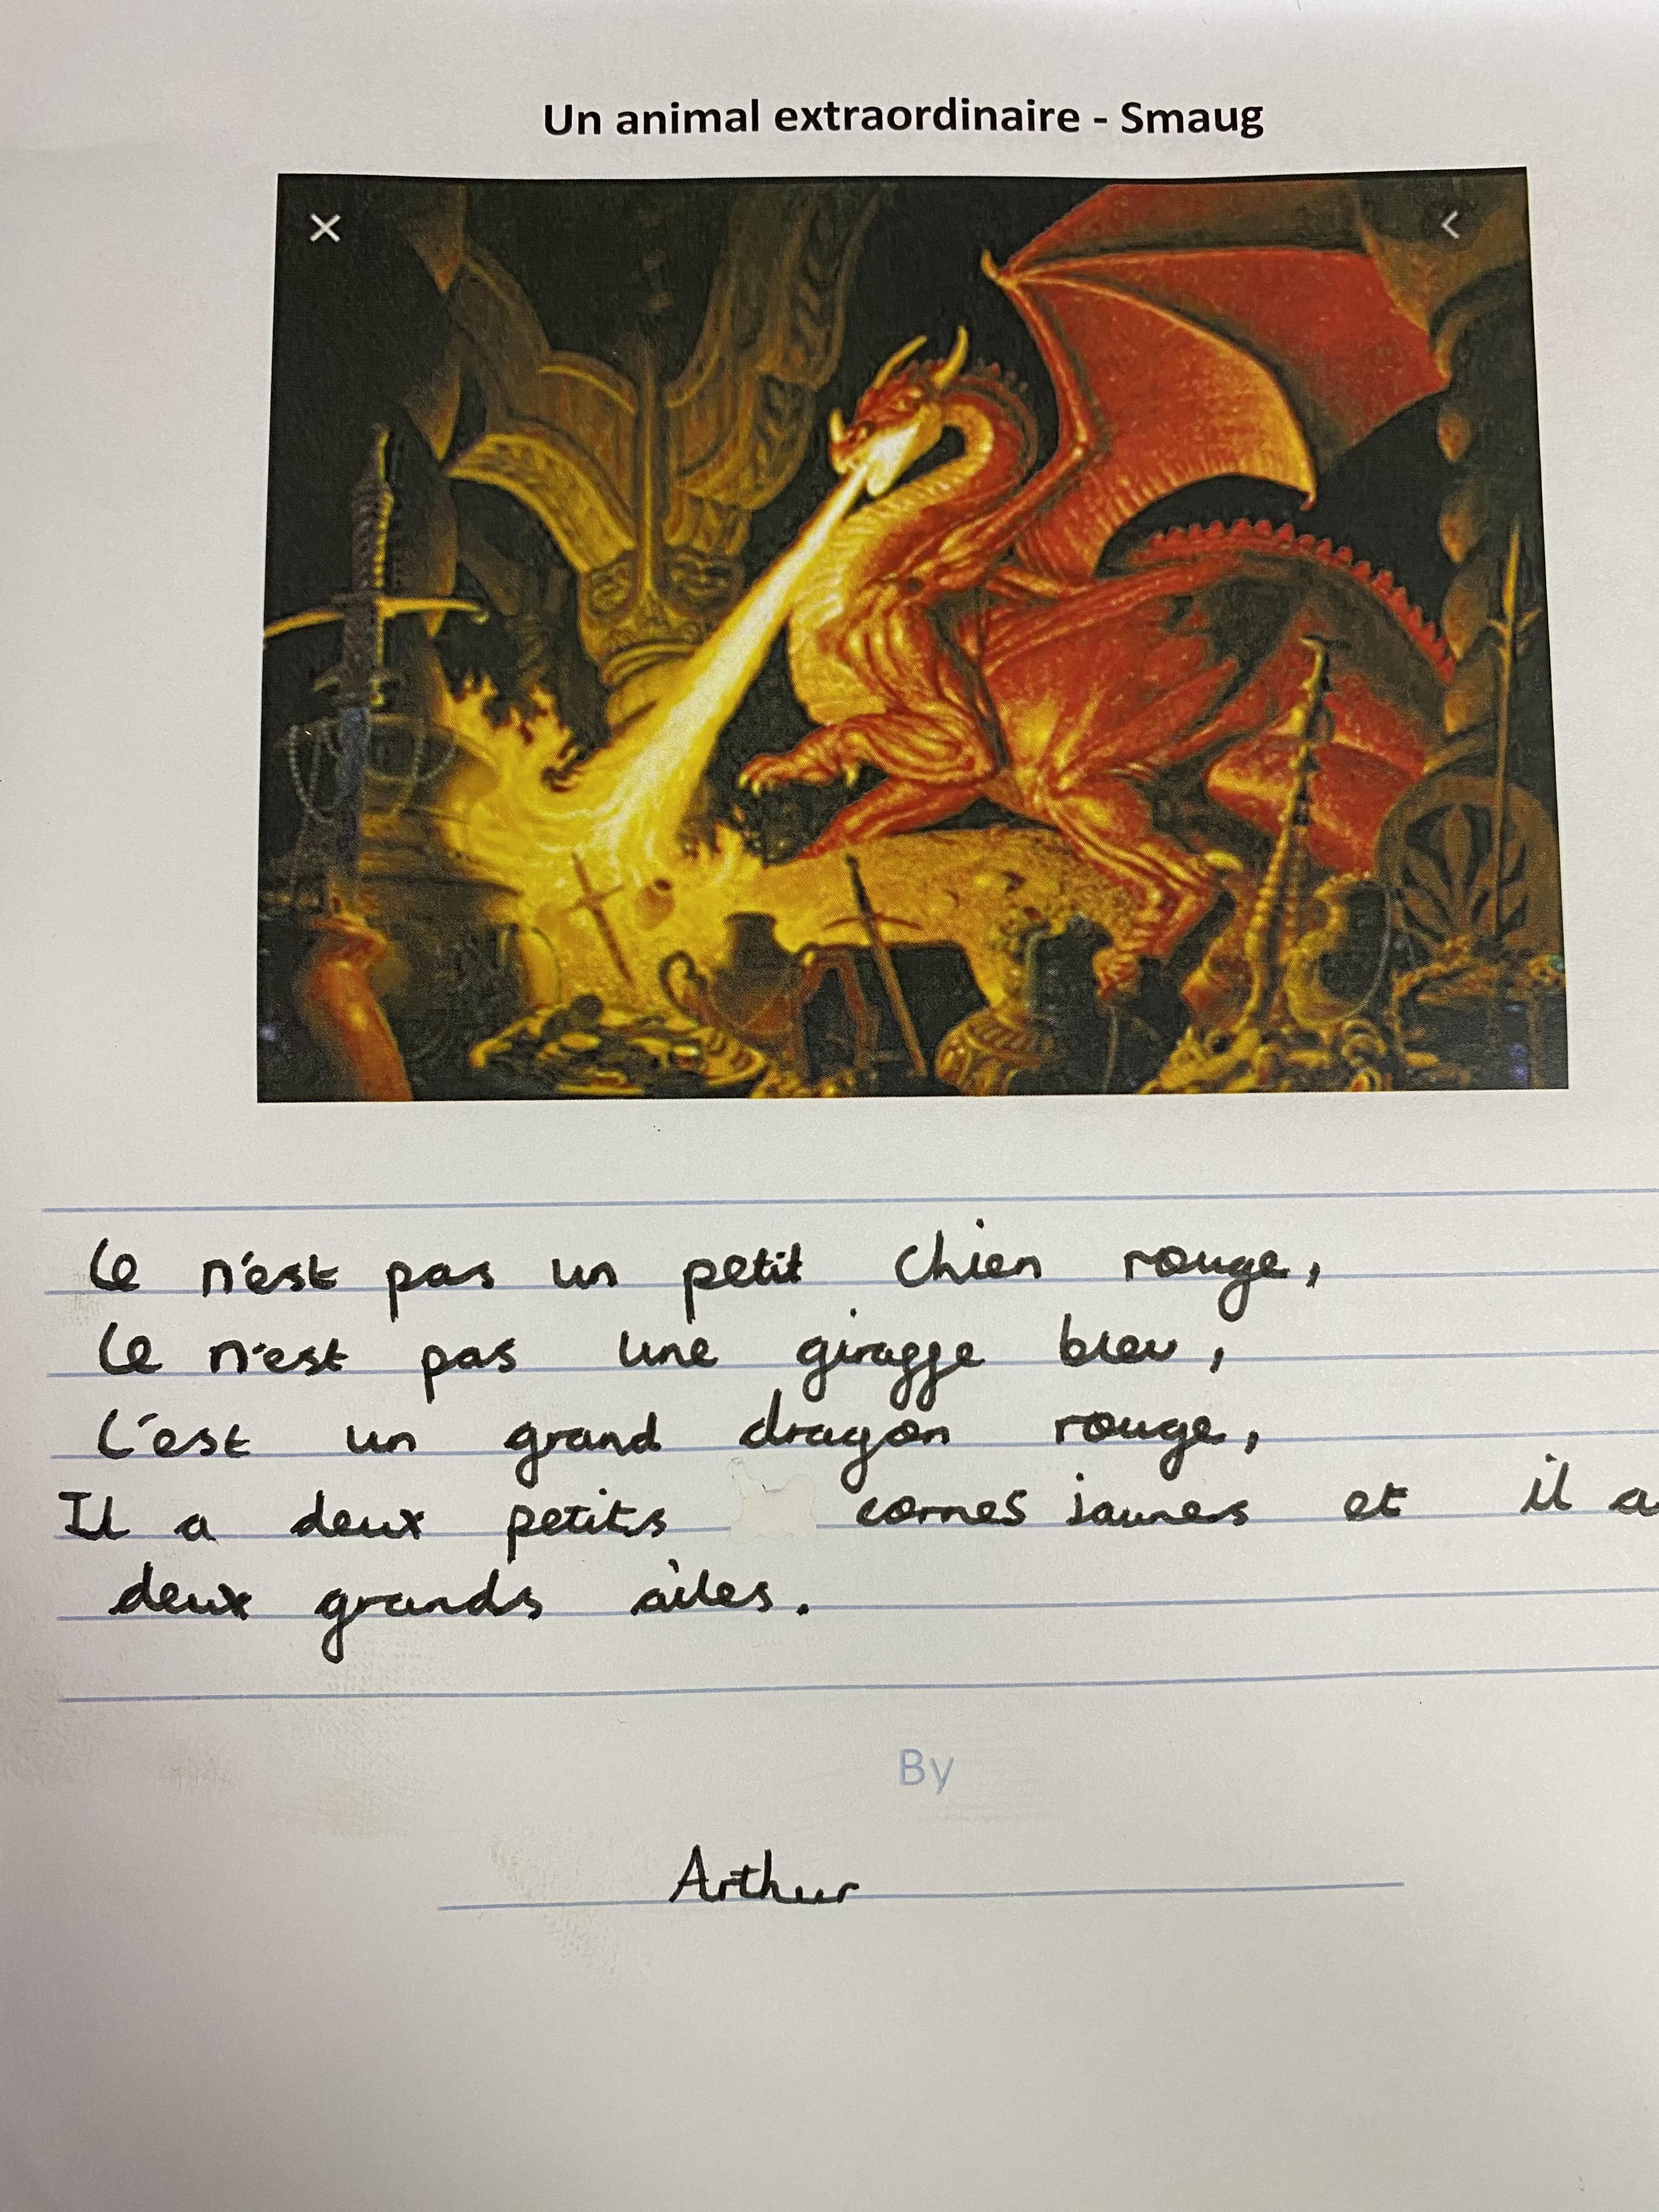 Un animal extraordinaire - Smaug
Ce n'est pas un petit chien rouge,
Ce n'est pas une giraffe bleu,
C'est un grand dragon rouge,
Il a deux petits cornes jaunes et il a
deux grands ailes.
By
Arthur